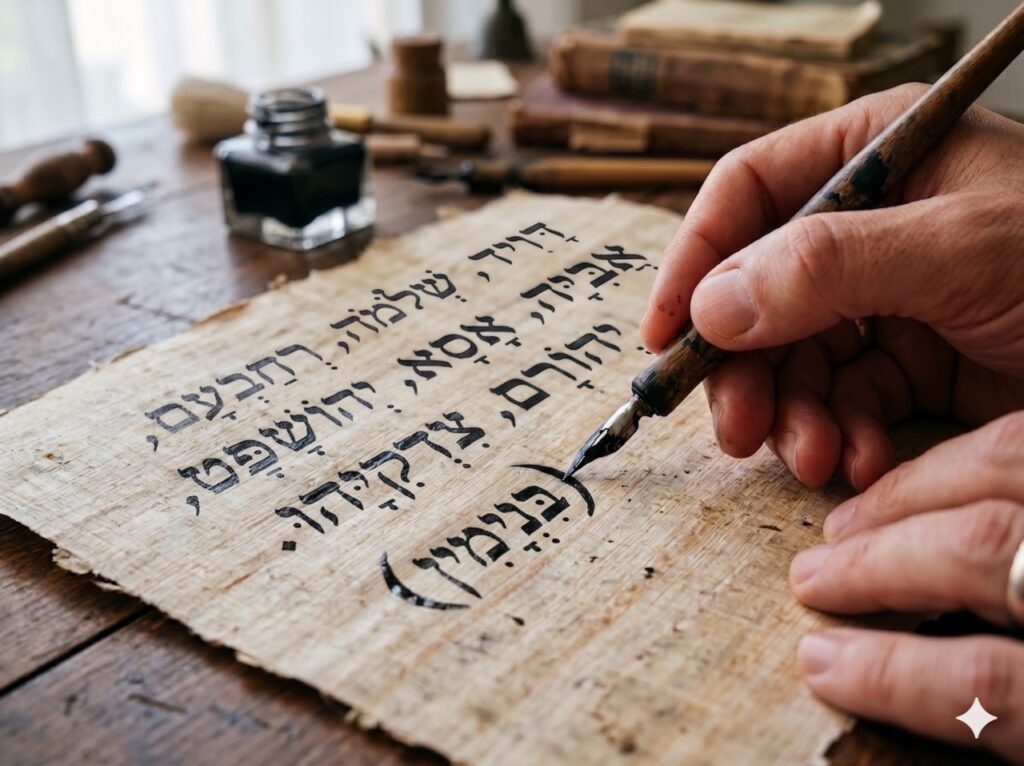 דָוִיד, שְׁלֹמֹה, רְחַבְעָם,
אֲבִיָּה, אָסָא, יְהוֹשָׁפָט,
יְהוֹרָם, צִדְקִיָּהוּ.
(בִּנְיָמִין)